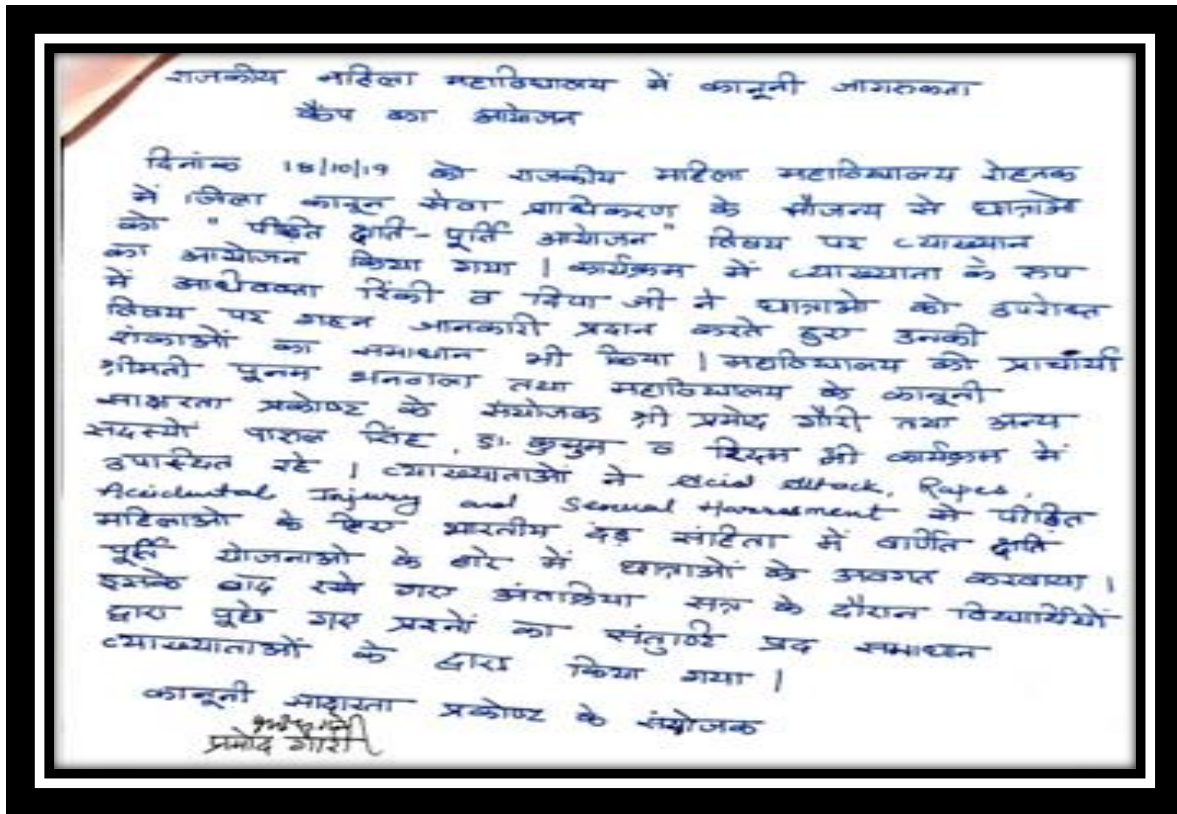 राजकीय महिला महाविद्यालय में कानूनी जागरुकता
कैंप का आयोजन
दिनांक 18/10/19 को राजकीय महिला महाविद्यालय रोहतक
में जिला कानून सेवा प्राधिकरण के सौजन्य से छात्राओं
को " पीड़ित क्षति-पूर्ति आयोजन " विषय पर व्याख्यान
का आयोजन किया गया | कार्यक्रम में व्याख्याता के रुप
में अधिवक्ता रिंकी व दिया जी ने छात्राओं को उपरोक्त
विषय पर गहन जानकारी प्रदान करते हुए उनकी
शंकाओं का समाधान भी किया | महाविद्यालय की प्राचार्या
श्रीमती पूनम भनवाला तथा महाविद्यालय के कानूनी
साक्षरता प्रकोष्ठ के संयोजक श्री प्रमोद गौरी तथा अन्य
सदस्यों पारुल सिंह, डा. कुसुम व रिदम भी कार्यक्रम में
उपस्थित रहे | व्याख्याताओं ने Acid Attack, Rapes,
Accidental Injury and Sexual Harrasment से पीड़ित
महिलाओं के लिए भारतीय दंड संहिता में वर्णित क्षति
पूर्ति योजनाओं के बारे में छात्राओं के अवगत करवाया |
इसके बाद रखे गए अंतःक्रिया सत्र के दौरान विद्यार्थियों
द्वारा पूछे गए प्रश्नों का संतुष्टि प्रद समाधान
व्याख्याताओं के द्वारा किया गया |
कानूनी साक्षरता प्रकोष्ठ के संयोजक
प्रमोद गौरी